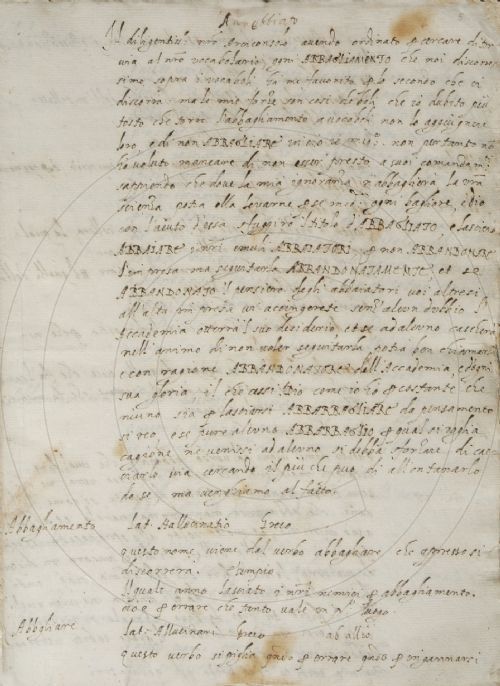 Il diligentiss. nro Arciconsolo avendo ordinato p cercare di tor
via al nro vocabolario ogni ABBAGLIAMENTO che noi discores
simo sopra i vocaboli fa mi favorito p lo secondo che ci
discorra ma le mie forze son così debboli che io dubito più
tosto che torre l'abbagliamento a vocaboli non lo aggiugnere
loro, e di non ABBAGLIARE non pertanto nō
ho voluto mancare di non esser presto a suoi comandam.
sappiendo che dove la mia ignoranza abbaglierà la vra
scienza potrà ella levarne ogni bagliore, e io
con l'aiuto d'essa sfuggirò l titolo d'ABBAGLIATO, e lasciero
ABBAIARE emuli ABBAIATORI p non ABBANDONARE
l'impresa ma seguitarla ABBANDONATAMENTE et se
ABBANDONATO il pensiero degli abbaiatori voi altresi
all'alta impresa vi accingerete senz'alcun dubbio l'
Accademia otterrà l suo desiderio et se ad alcuno cascherà
nell'animo di non voler seguitarla potrà ben chiamarsi
e con ragione ABBANDONATORE dell'Accademia e d'ogni
sua gloria, il che cessi Dio come io ho p costante che
niuno sia p lasciarsi ABBARBAGLIARE da pensamento
si reo, e se pure alcuno ABBARBAGLIO p qual si voglia
cagione ne venissi ad alcuno si debba sforzare di cac-
ciarlo via cercando il più che può di allontanarlo
da se, ma venghiamo al fatto.
Abbagliamento Lat. Hallucinatio Greco
questo nome viene dal verbo abbagliare che appresso si
discorrerà. Esempio
Il quale anno lasciato i nri nemici p abbagliamento.
cioè p errare che tanto vale in q.º luogo.
Abbagliare Lat. Allucinari Greco ab allio
questo verbo si piglia qndo p errore qndo p ingannarsi